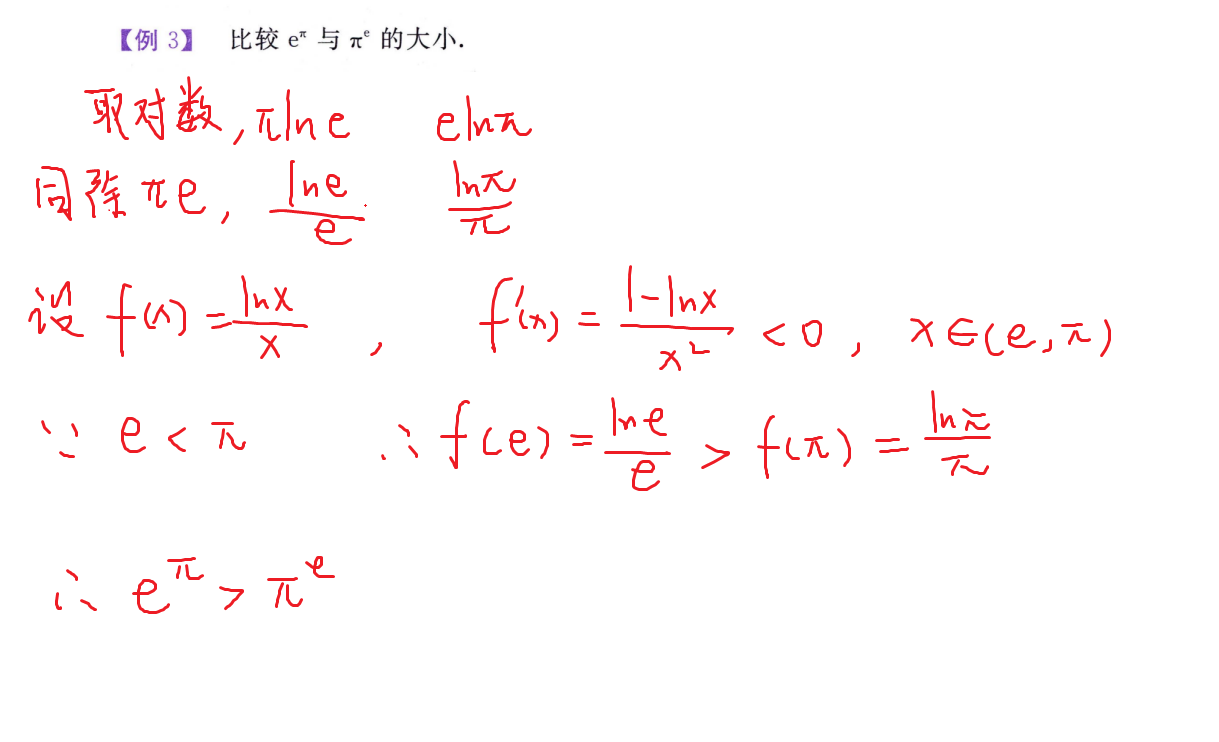 【例 3】 比较 e^π 与 π^e 的大小.
取对数, πln e eln π
同除 πe, ln e/e ln π/π
设 f(x) = ln x/x , f'(x) = 1-ln x/x² < 0 , x∈(e,π)
∵ e < π ∴ f(e) = ln e/e > f(π) = ln π/π
∴ e^π > π^e